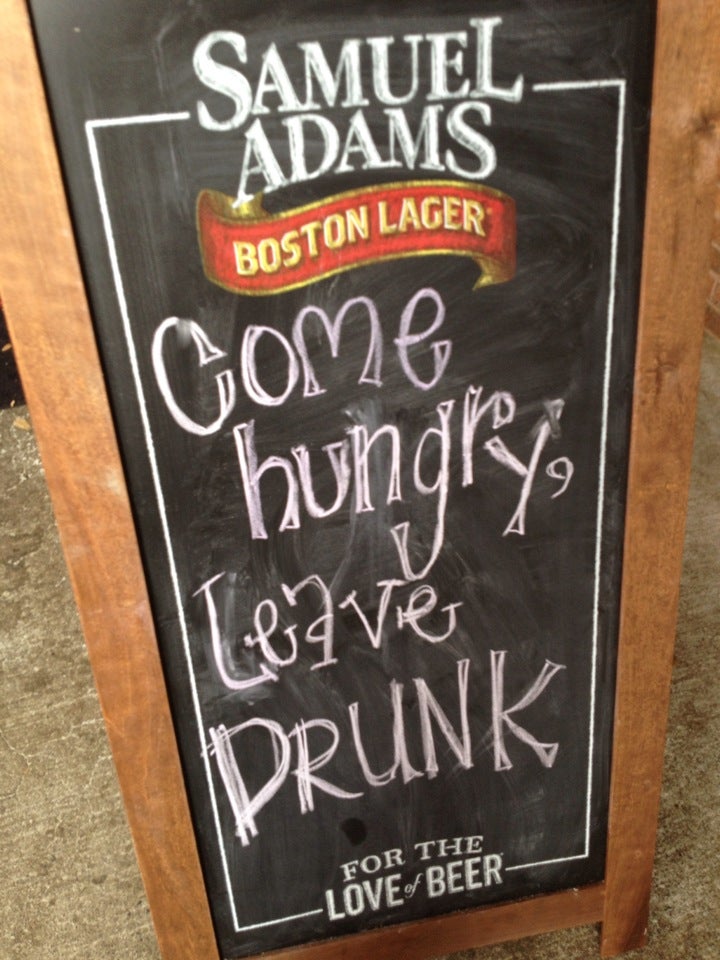 SAMUEL
ADAMS
BOSTON LAGER
Come
hungry,
Leave
DRUNK
FOR THE
LOVE of BEER